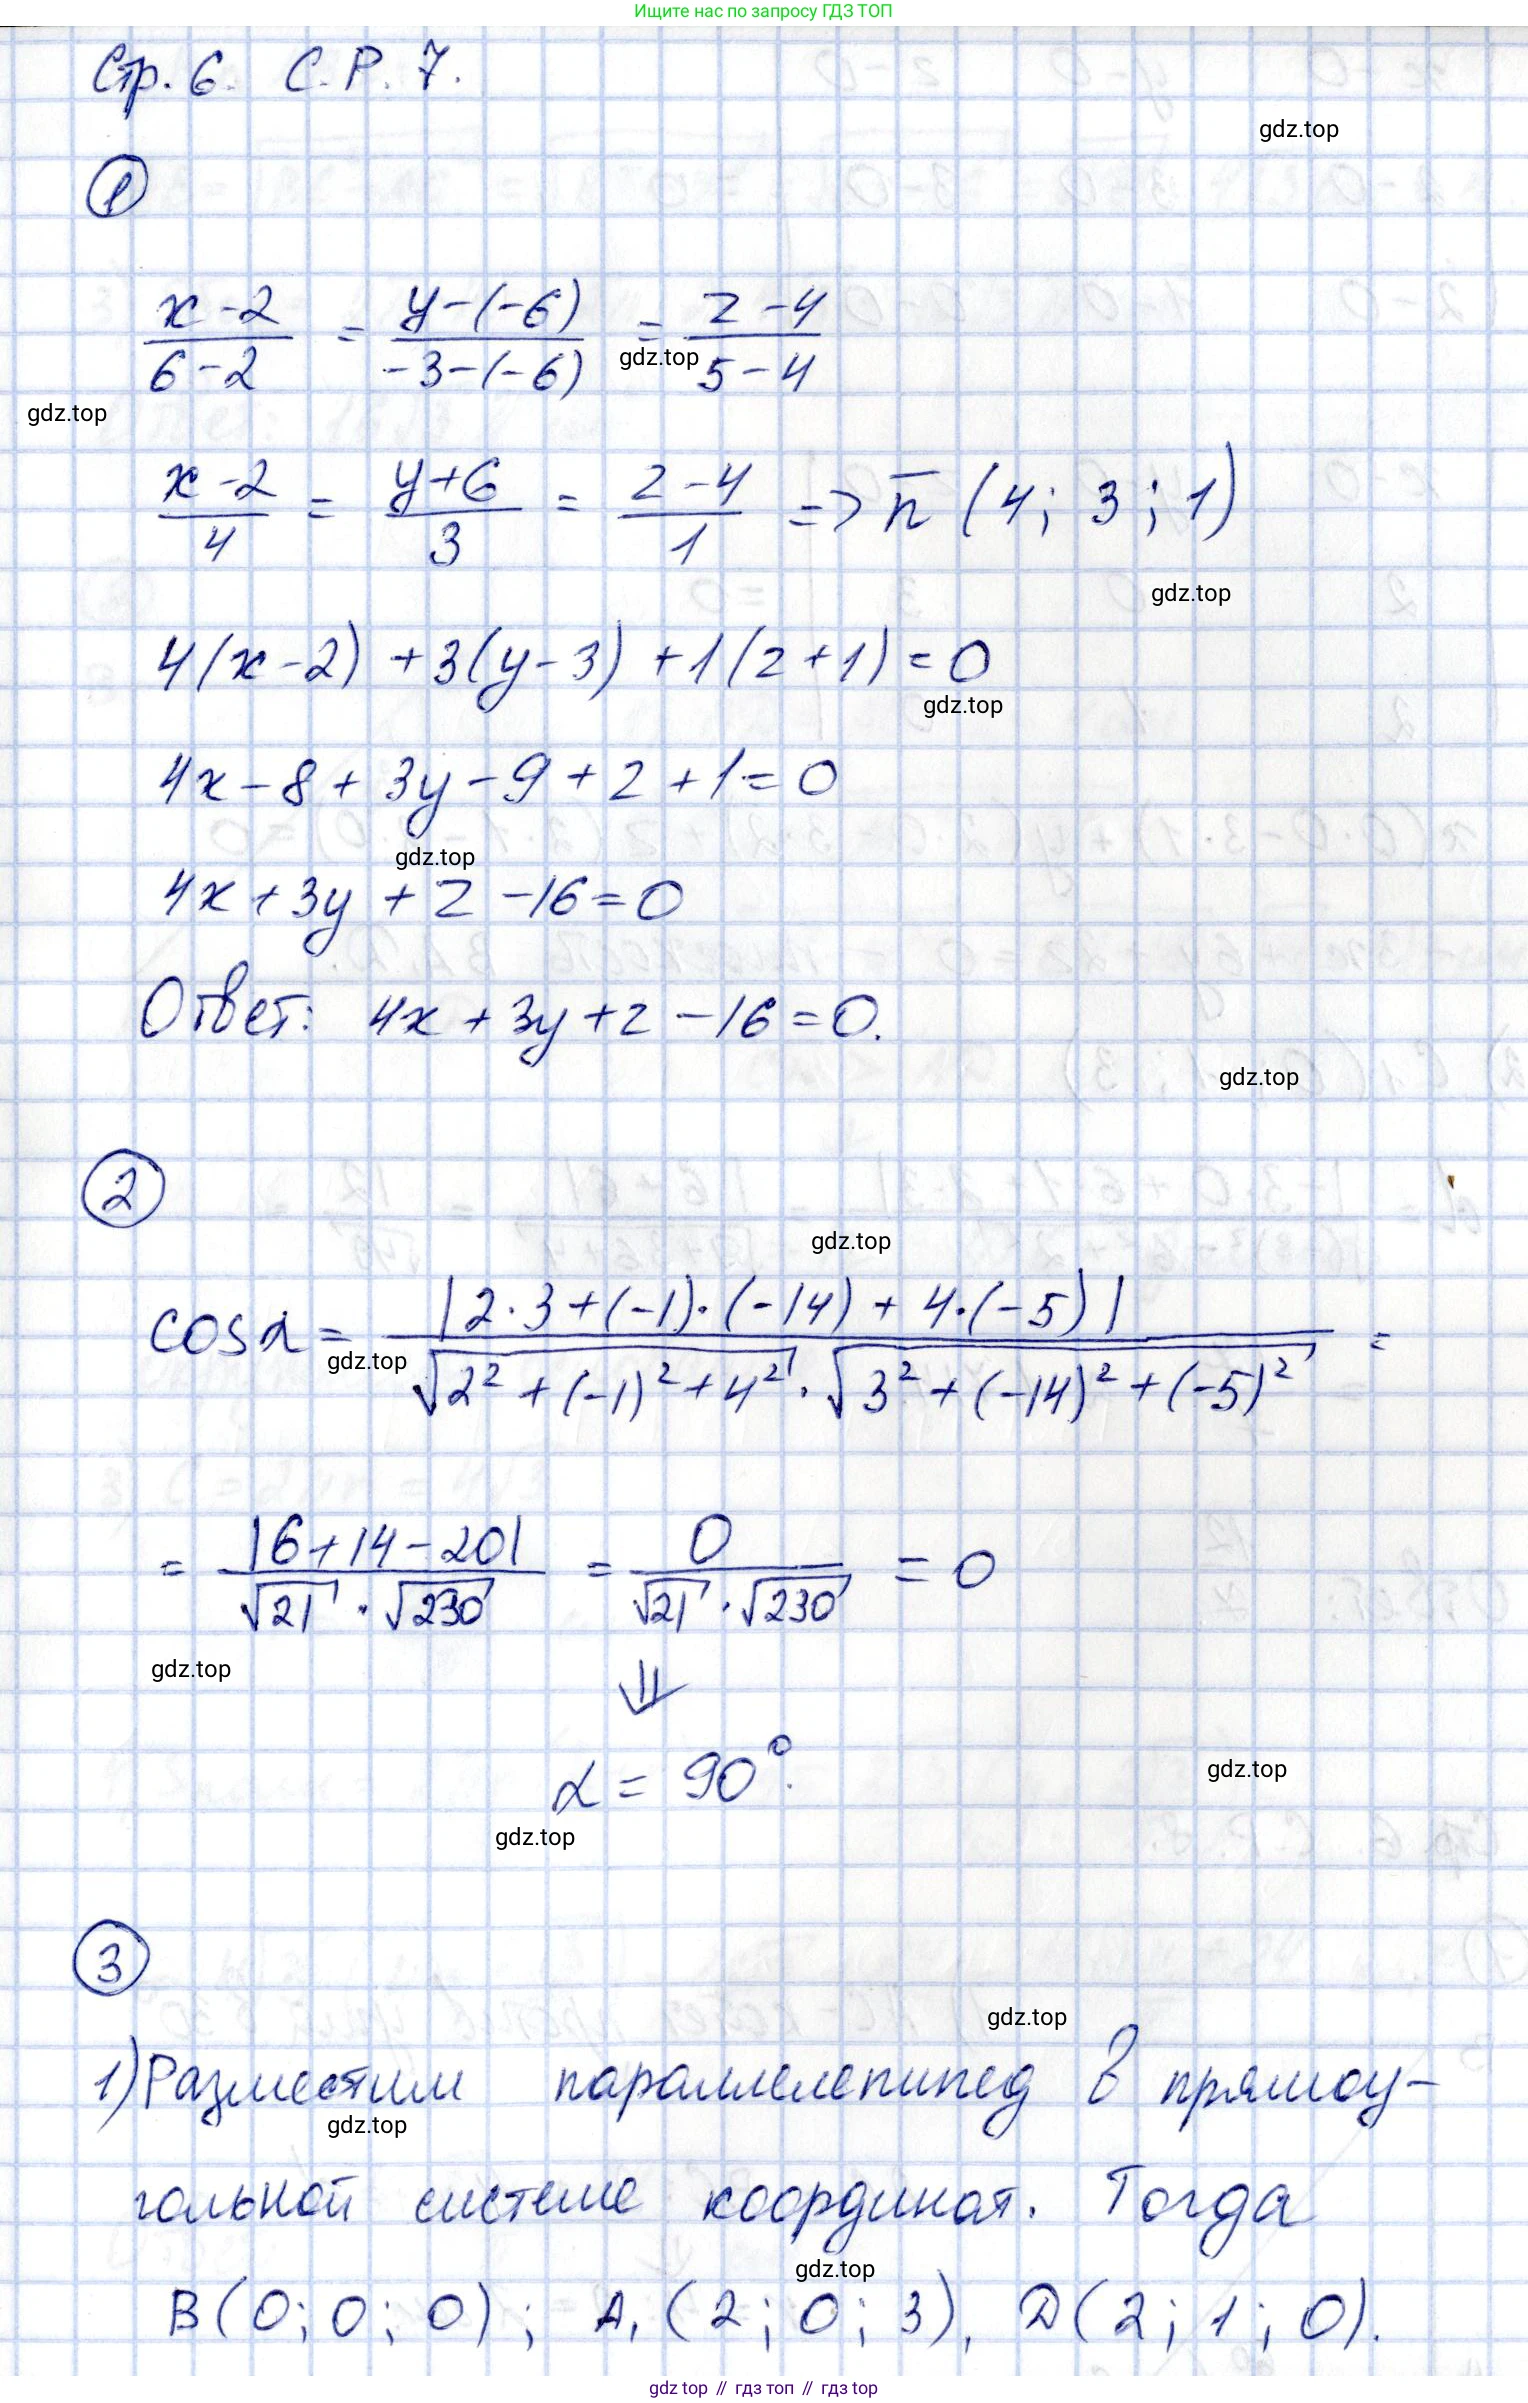 Ищите нас по запросу ГДЗ ТОП
Стр. 6. С.Р. 7.
gdz.top
1
(x-2)/(6-2) = (y-(-6))/(-3-(-6)) = (z-4)/(5-4)
gdz.top
gdz.top
(x-2)/4 = (y+6)/3 = (z-4)/1 => n̅ (4; 3; 1)
gdz.top
4(x-2) + 3(y-3) + 1(z+1) = 0
gdz.top
4x - 8 + 3y - 9 + z + 1 = 0
gdz.top
4x + 3y + z - 16 = 0
Ответ: 4x + 3y + z - 16 = 0.
gdz.top
2
gdz.top
cos α = |2·3 + (-1)·(-14) + 4·(-5)| / (√(2² + (-1)² + 4²) · √(3² + (-14)² + (-5)²)) =
gdz.top
= |6 + 14 - 20| / (√21 · √230) = 0 / (√21 · √230) = 0
gdz.top
⇓
α = 90°.
gdz.top
gdz.top
3
gdz.top
1) Разместим параллелепипед в прямоу-
gdz.top
гольной системе координат. Тогда
gdz.top
B(0; 0; 0); A₁(2; 0; 3), D(2; 1; 0).
gdz top // гдз топ // gdz top